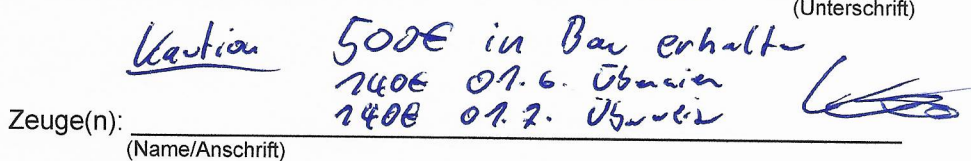 (Unterschrift)
Kaution 500€ in Bar erhalten
140€ 01.6. Überweisen
140€ 01.7. Überweisen
Zeuge(n):
(Name/Anschrift)